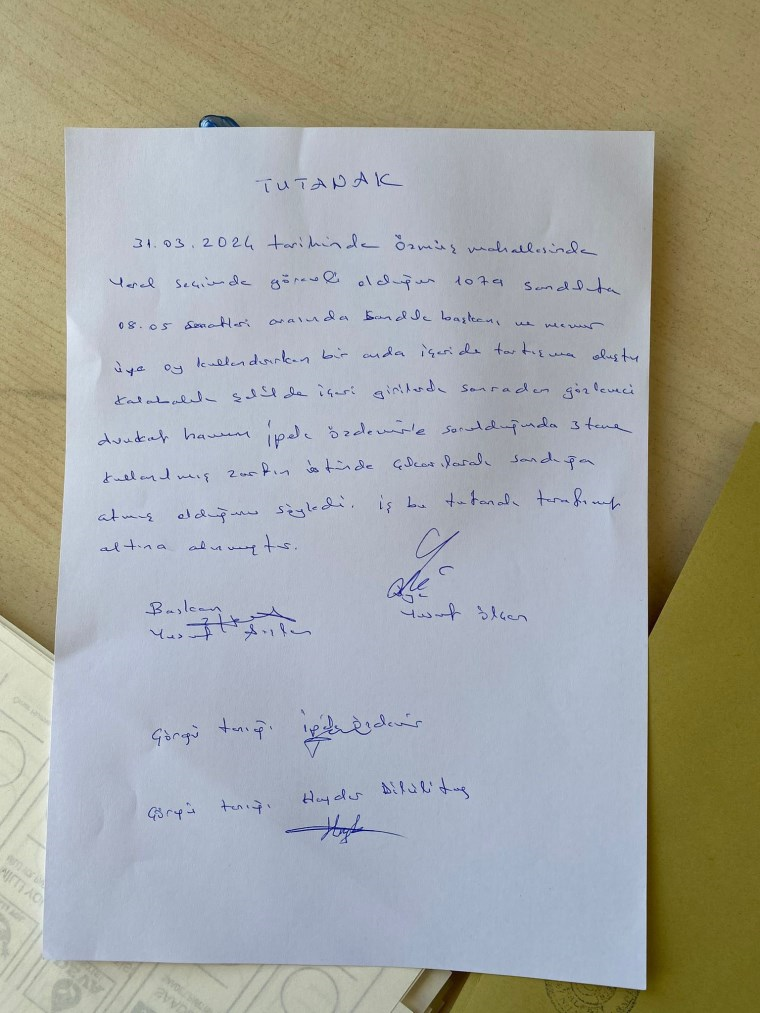 TUTANAK
31.03.2024 tarihinde Özmüş mahallesinde
Yerel seçimde görevli olduğum 1079 sandıkta
08.05 saatleri arasında Sandık başkanı ve memur
üye oy kullandırırken bir anda içeride tartışma oluştu
kalabalık şekilde içeri girilerek sonradan gözlemci
avukat hanım İpek Özdemir'e sorulduğunda 3 tane
kullanılmış zarfın üstünde çıkarılarak sandığa
atmış olduğunu söyledi. iş bu tutanak tarafımız
altına alınmıştır.
Başkan
Yusuf
Üye
Yusuf
Görgü tanığı İpek Özdemir
Görgü tanığı Haydar Dikilitaş